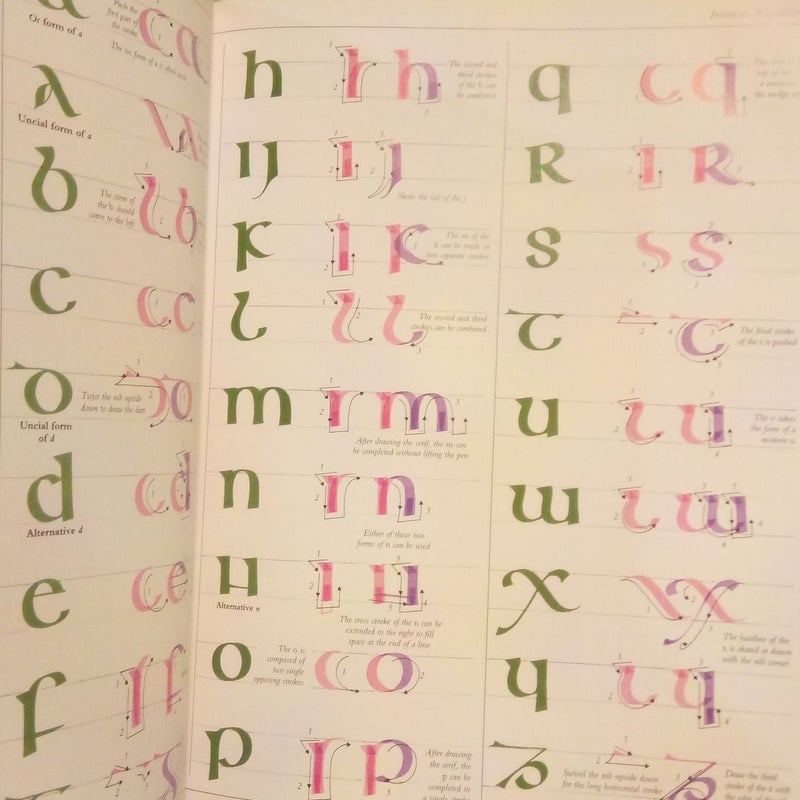 Push the
first part of
the stroke
Oc form of a
The oc form of a is often used
a
Uncial form of a
b
The stem of
the b should
curve to the left
c
d
Twist the nib upside
down to draw the
Uncial form
of d
d
Alternative d
e
f
h
The second and
third strokes
of the h can
be combined
ij
Skate the tail of the j
k
The arc of the
k can be made in
two separate strokes
l
The second and third
strokes can be combined
m
After drawing the serif, the m can
be completed without lifting the pen
n
Either of these two
forms of n can be used
n
Alternative n
The cross stroke of the n can be
extended to the right to fill
space at the end of a line
o
The o is
composed of
two single
opposing strokes
p
After drawing
the serif, the
p can be
completed in
a single stroke
q
top of the
R
s
t
The final stroke
of the t is pushed
u
The u takes
the form of a
modern u
w
x
The hairline of the
x is skated or drawn
with the nib corner
y
z
Swivel the nib upside down
for the long horizontal stroke
Draw the third
stroke of the z with